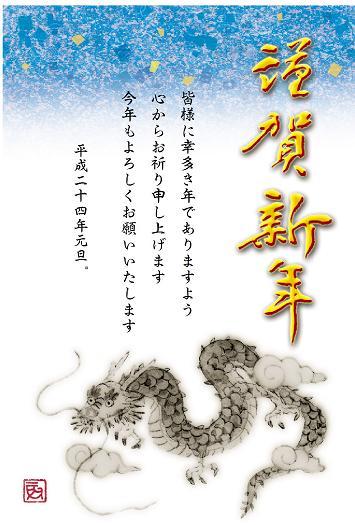 謹賀新年
皆様に幸多き年でありますよう
心からお祈り申し上げます
今年もよろしくお願いいたします
平成二十四年元旦。